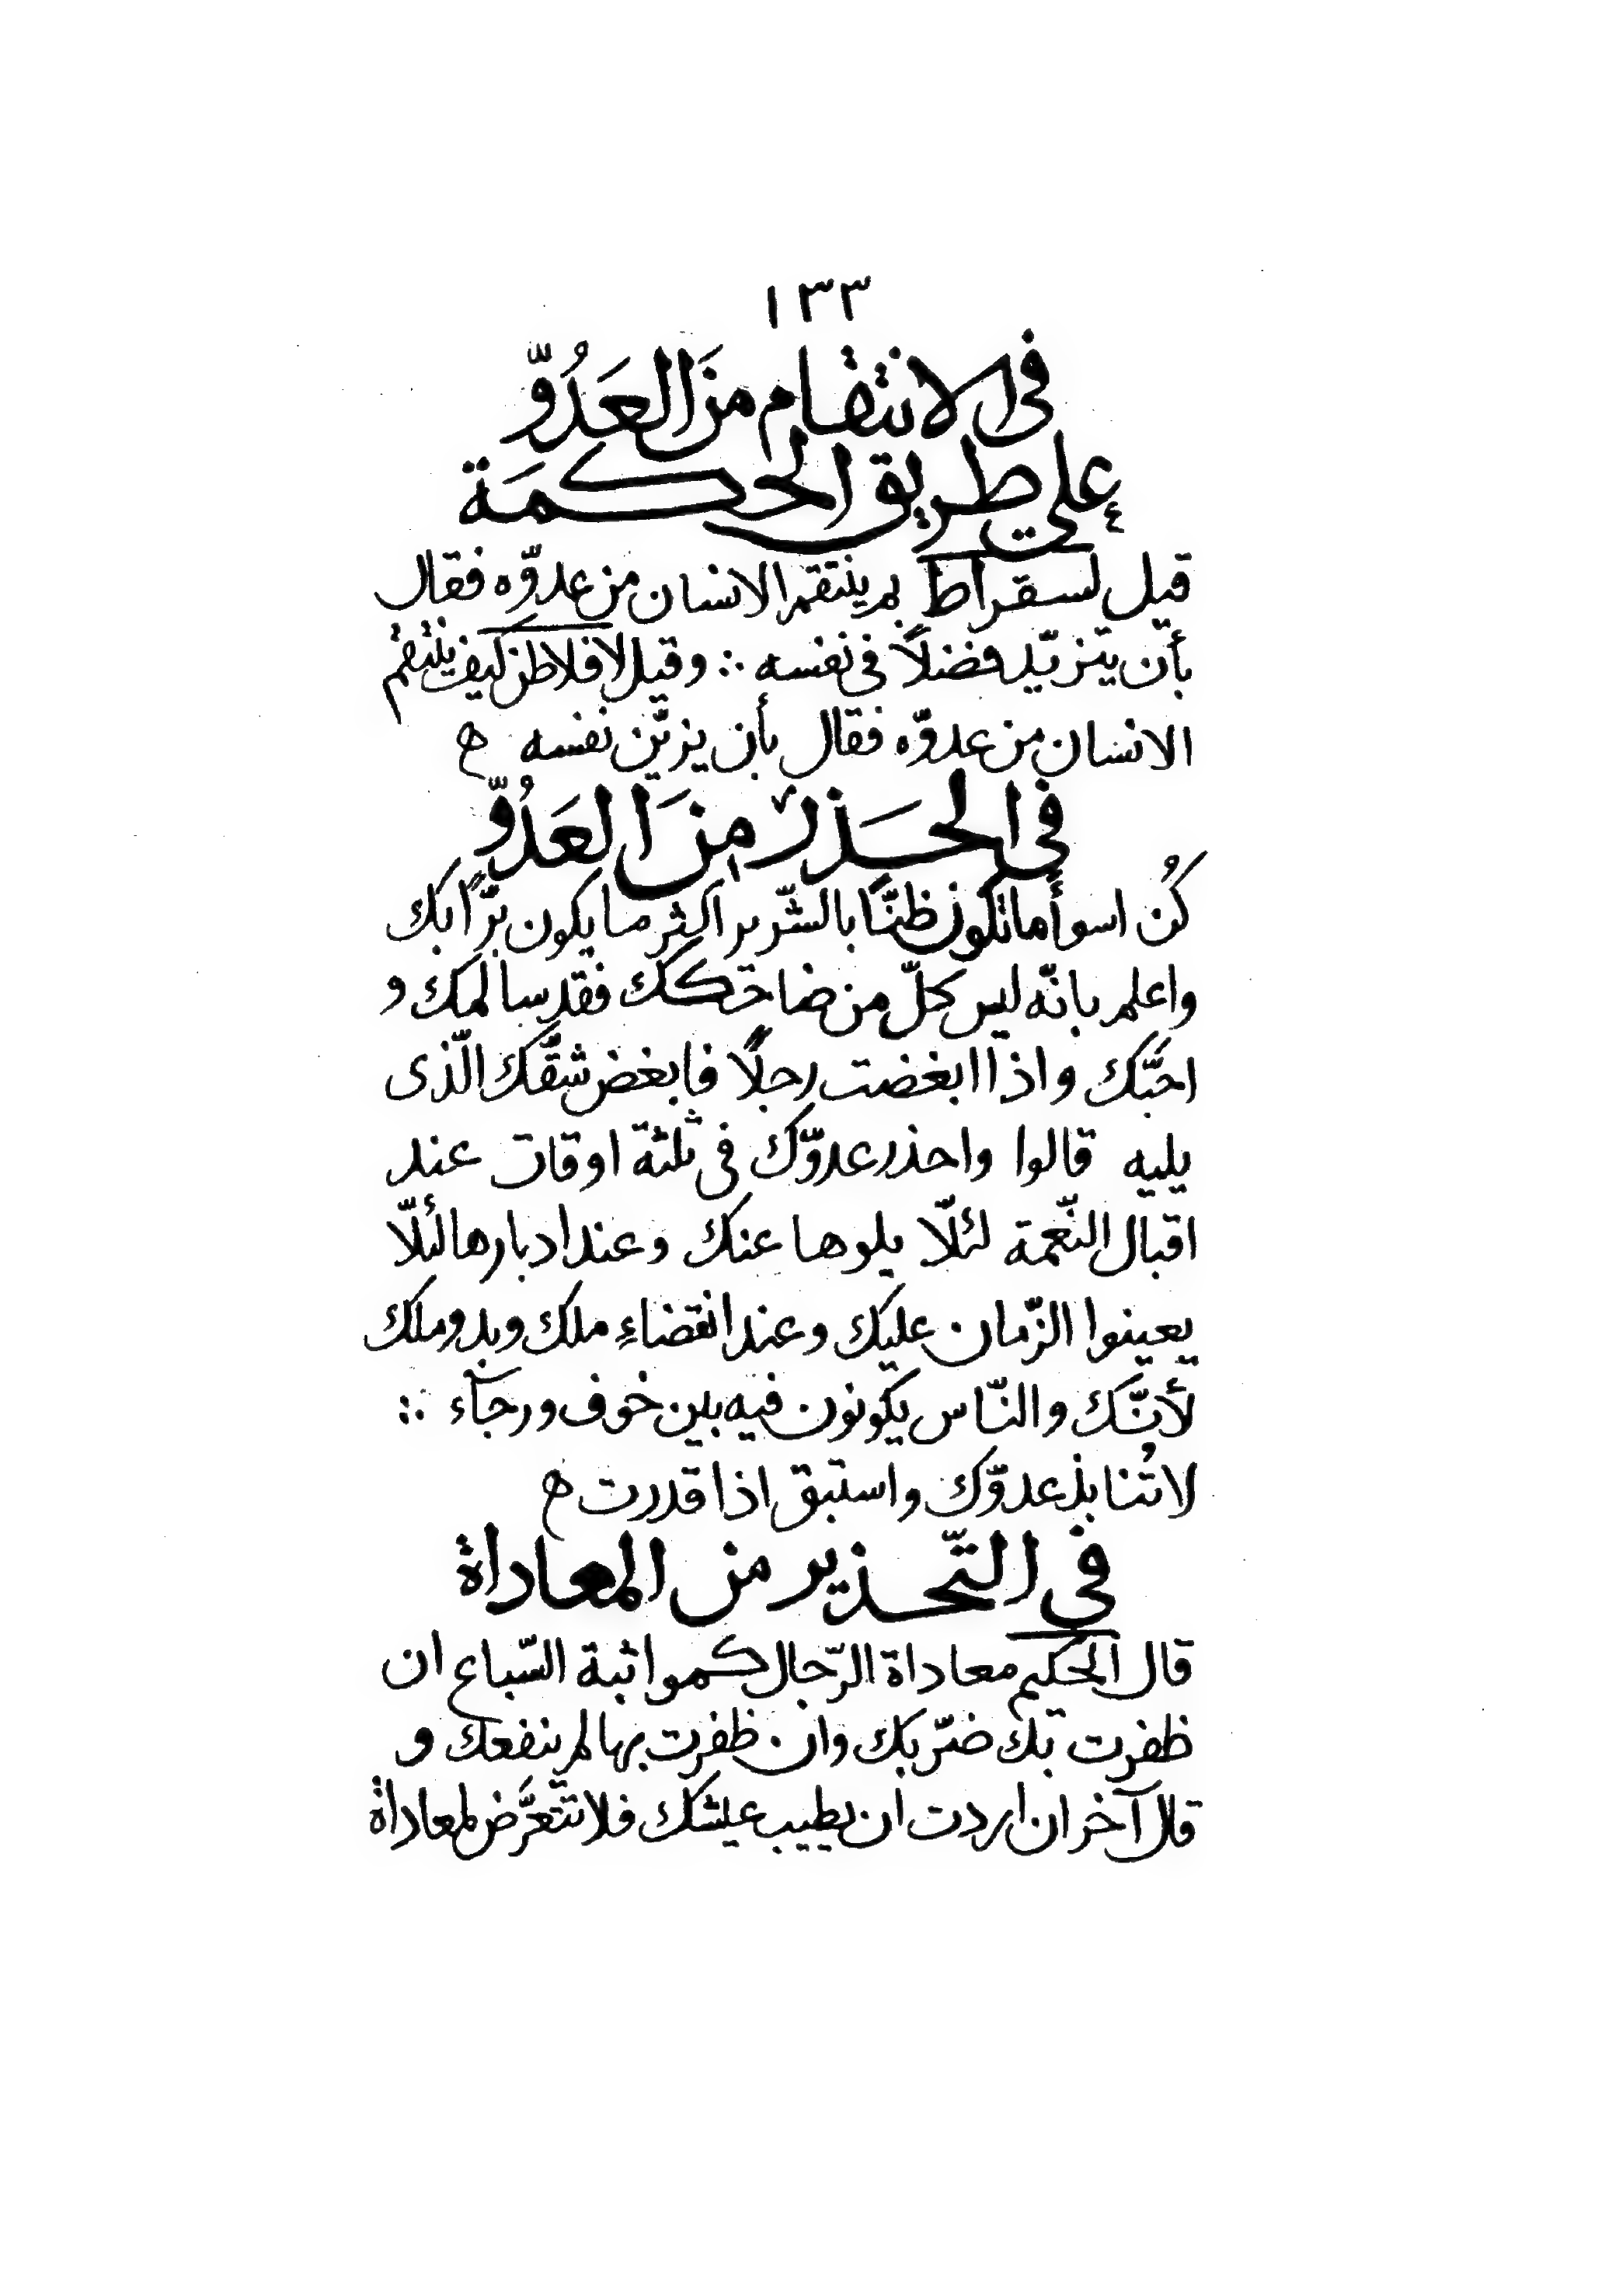 ١٣٣
فى الانتقام منَ العَدُوّ
على طريق الحكمَة
قيل لسقراط بم ينتقم الانسان من عدوّه فقال
بأن يتزيّد فضلاً فى نفسه ∴ وقيل لافلاطن كيف ينتقم
الانسان من عدوّه فقال بأن يزيّن نفسه ح
فى الحَذر منَ العَدُوّ
كُن اسوأ ما تكون ظنّاً بالشّرير اكثر ما يكون برًّا بك
واعلم بانّه ليس كلّ من ضاحكك فقد سالمك و
احبَّك واذا ابغضت رجلاً فابغض شقّك الّذى
يليه قالوا واحذر عدوّك فى ثلثة اوقات عند
اقبال النّعمة لئلّا يلوها عنك وعند ادبارها لئلّا
يعينوا الزّمان عليك وعند انقضاءِ ملك وبدو ملك
لأنّك والنّاس يكونون فيه بين خوف ورجآء ∴
لا تُنابذ عدوّك واستبق اذا قدرت ح
فى التّحذير من المعاداة
قال الحكيم معاداة الرّجال كمواثبة السّباع ان
ظفرت بك ضرّبك وان ظفرت بها لم ينفعك و
قال آخر ان اردت ان يطيب عيشك فلا تتعرَّض لمعاداة